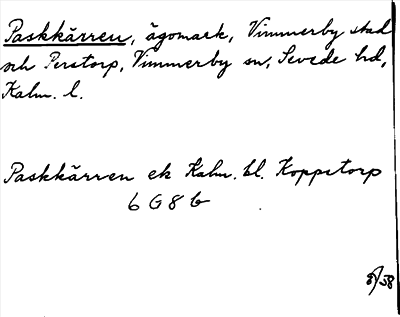 Paskkärren, ägomark, Vimmerby stad
och Perstorp, Vimmerby sn, Sevede hd,
Kalm. l.
Paskkärren ek Kalm. bl. Koppetorp
6 G 8 b
/58